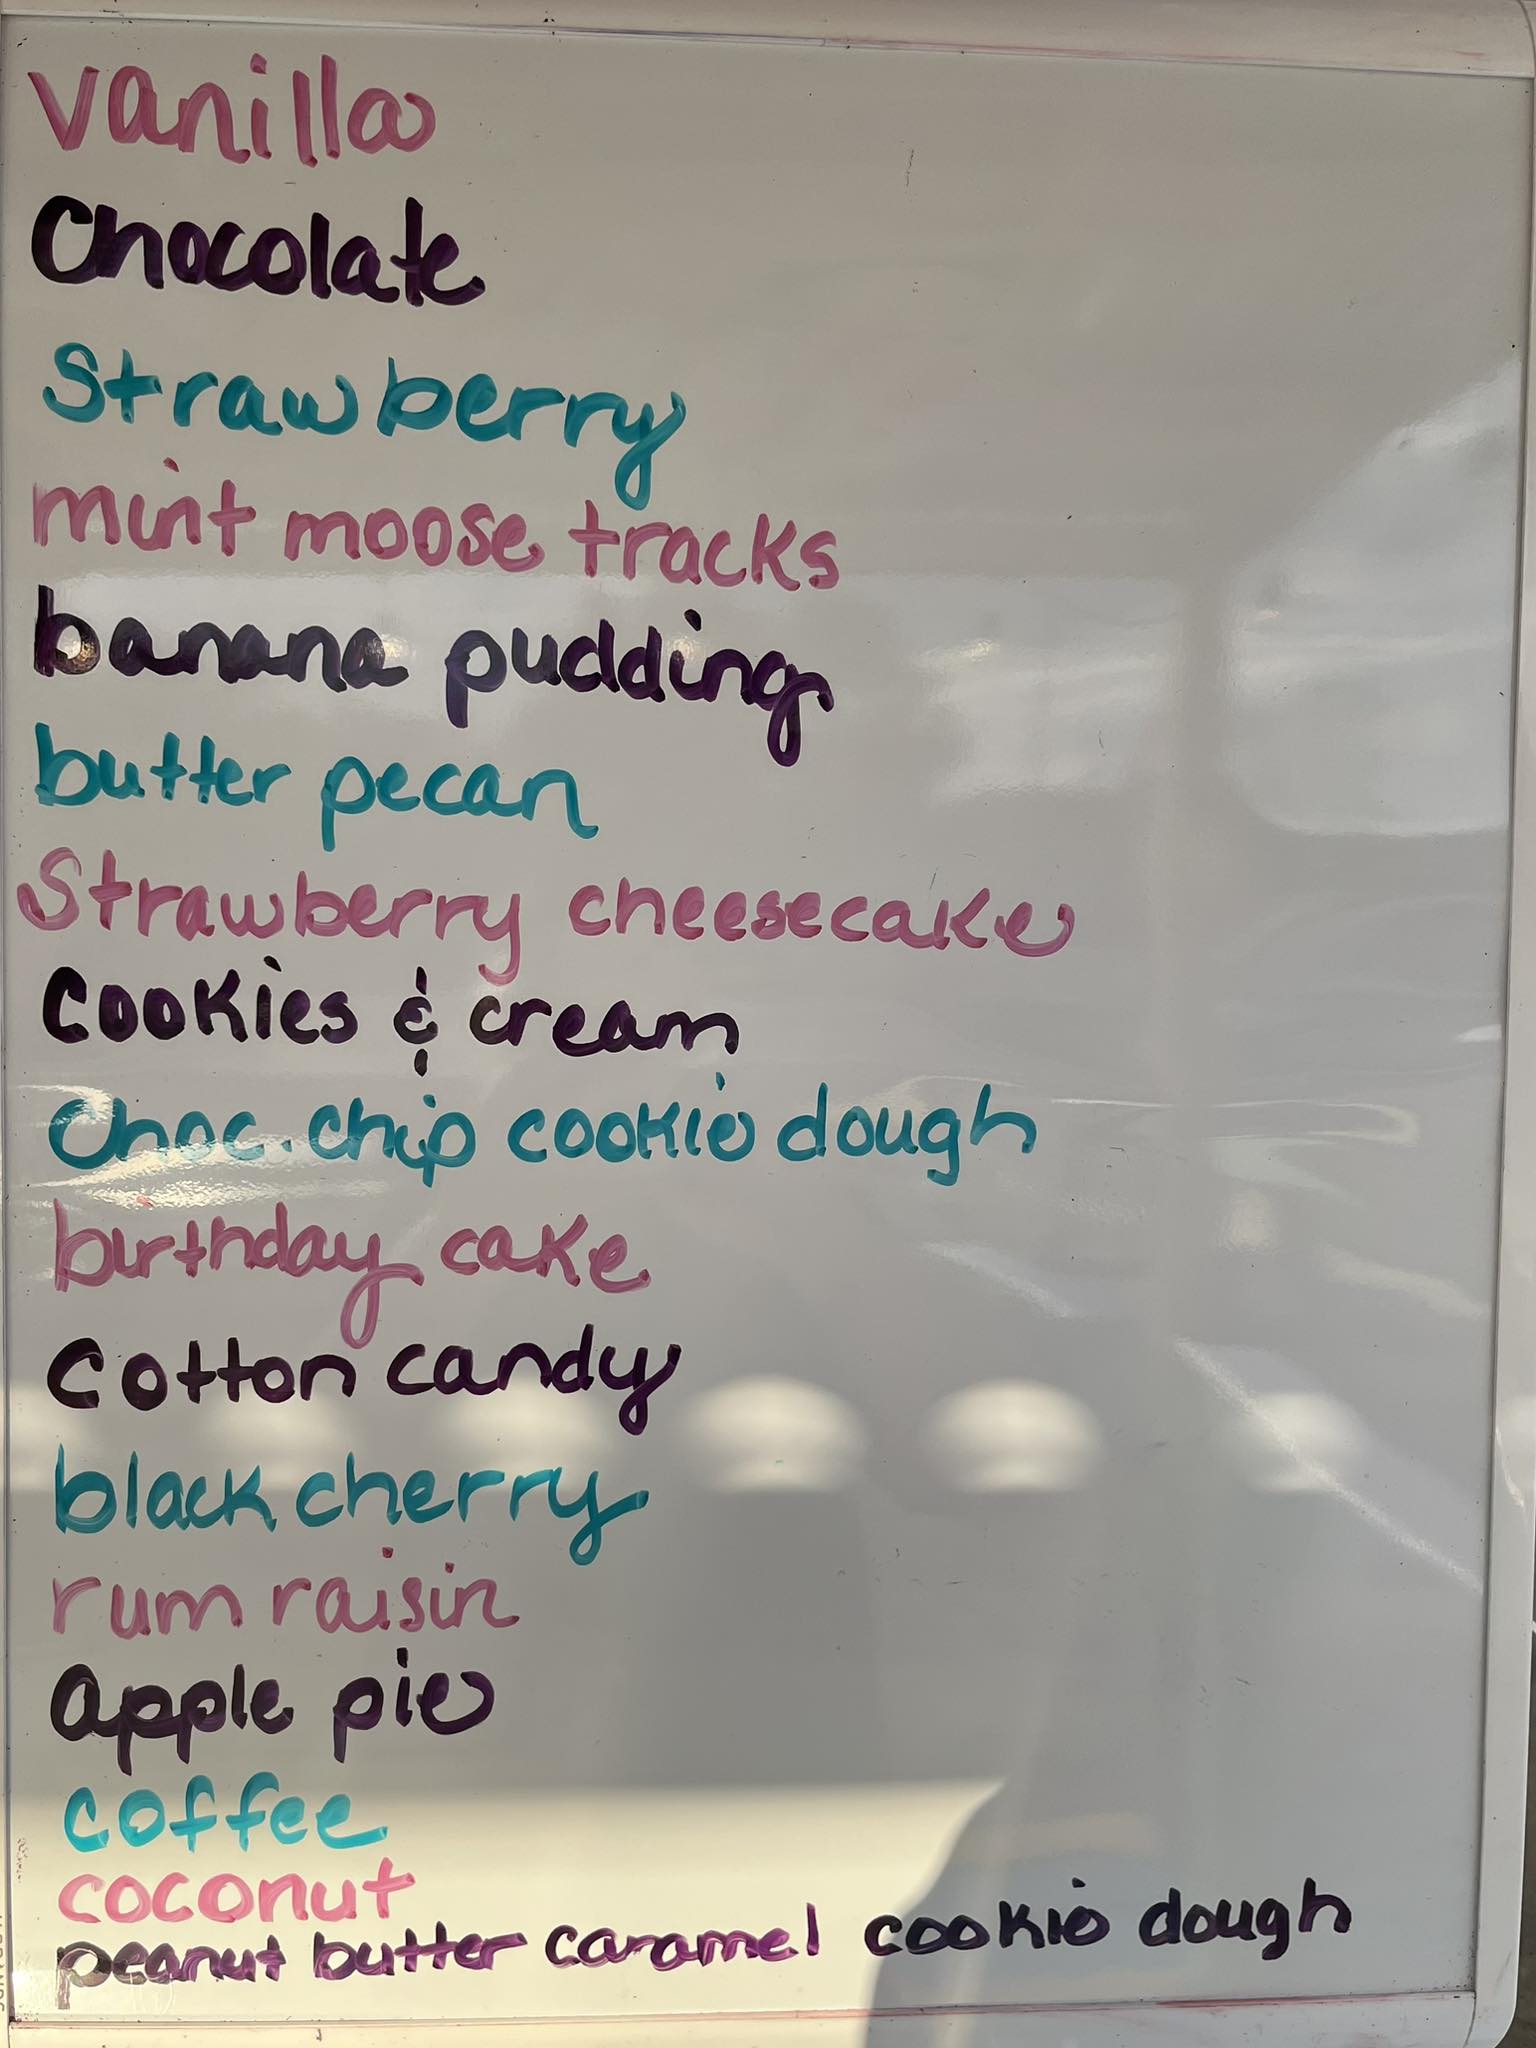 vanilla
Chocolate
Strawberry
mint moose tracks
banana pudding
butter pecan
Strawberry cheesecake
Cookies & cream
Choc. chip cookie dough
birthday cake
Cotton candy
black cherry
rum raisin
apple pie
coffee
coconut
peanut butter caramel cookie dough